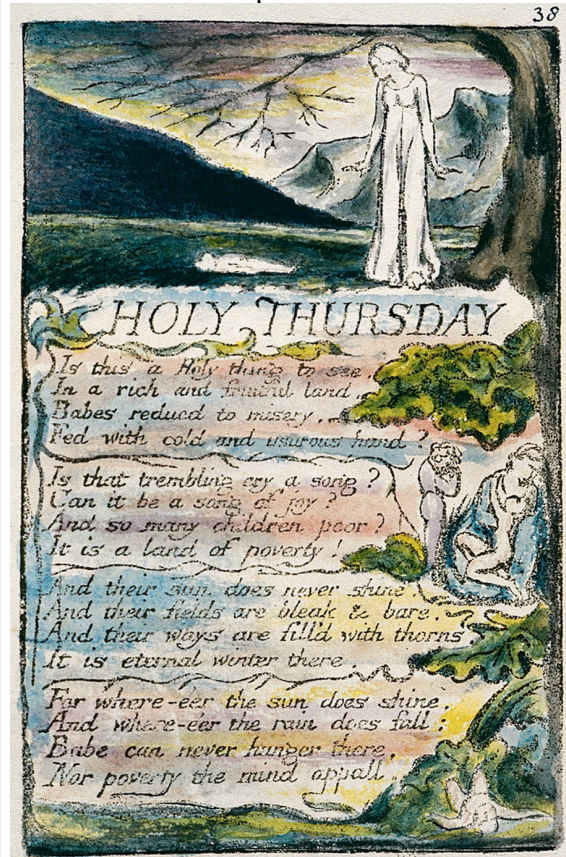 38
HOLY THURSDAY
Is this a Holy thing to see
In a rich and fruitful land
Babes reducd to misery
Fed with cold and usurous hand?
Is that trembling cry a song?
Can it be a song of joy?
And so many children poor?
It is a land of poverty!
And their sun does never shine
And their fields are bleak & bare.
And their ways are fill'd with thorns
It is eternal winter there.
For where-e'er the sun does shine.
And where-e'er the rain does fall:
Babe can never hunger there,
Nor poverty the mind appall.